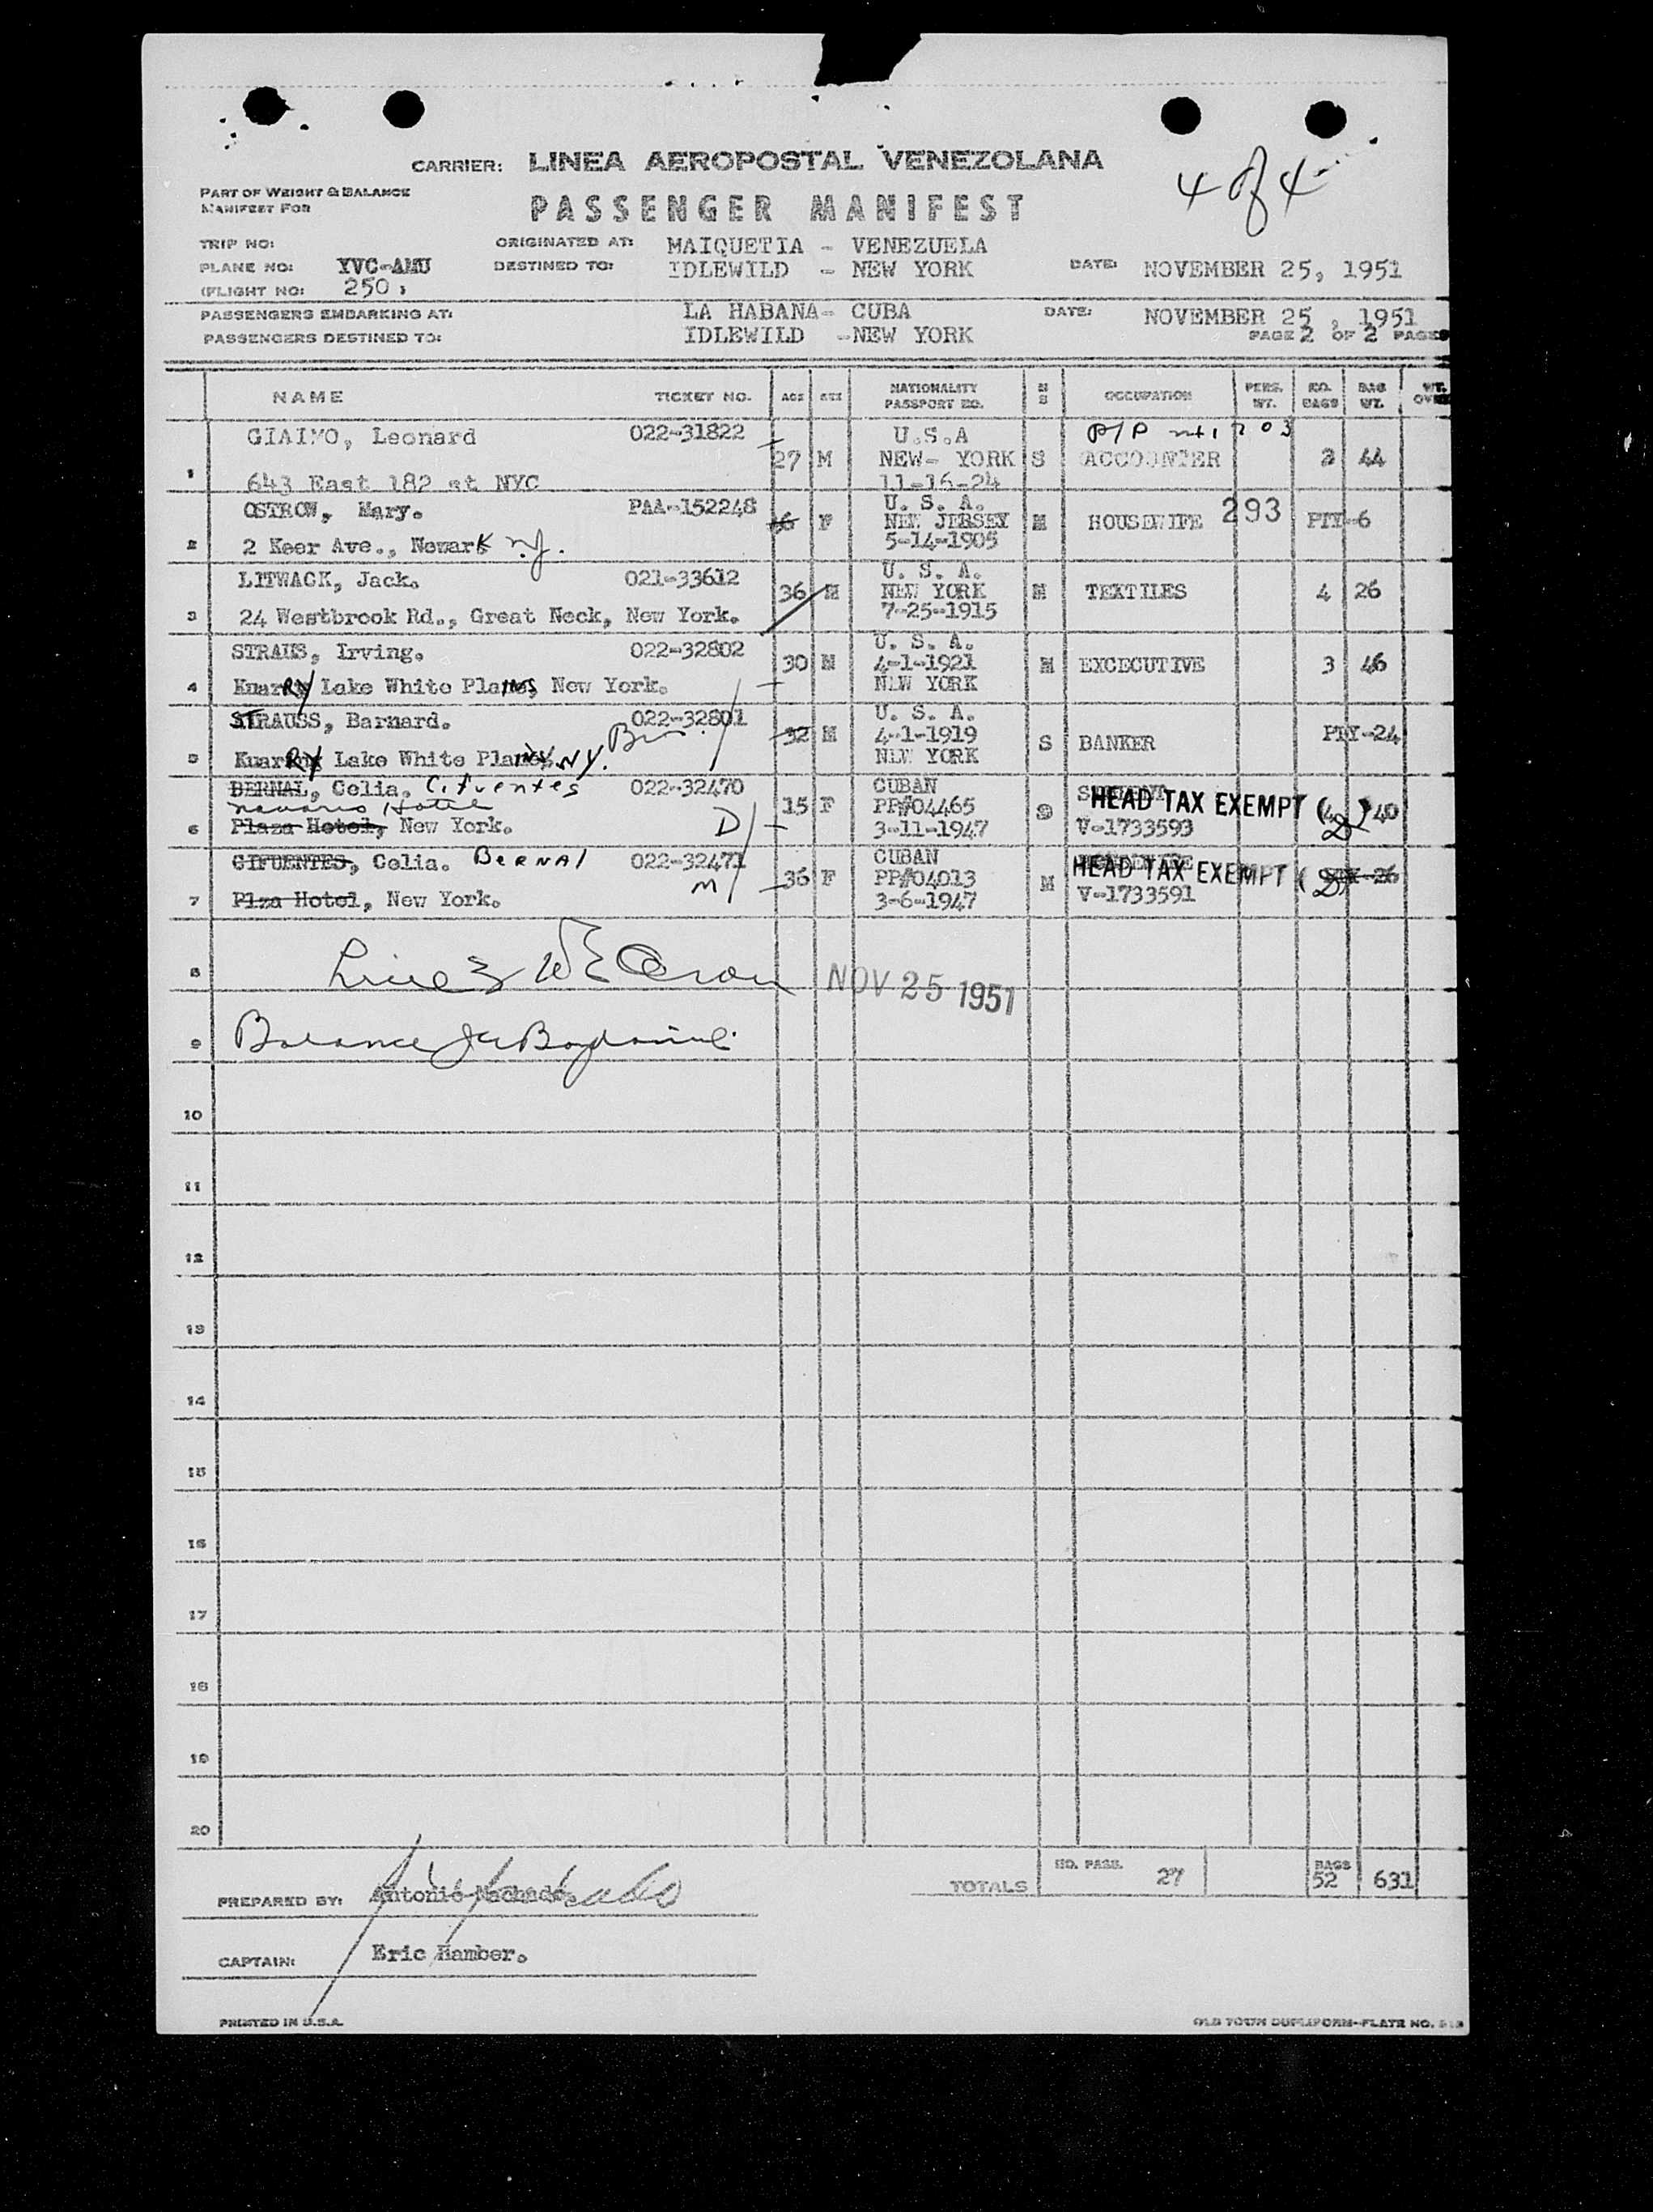 4 of 4
CARRIER: LINEA AEROPOSTAL VENEZOLANA
PART OF WEIGHT & BALANCE
MANIFEST FOR
PASSENGER MANIFEST
TRIP NO:
ORIGINATED AT: MAIQUETIA - VENEZUELA
PLANE NO: YVC-AMU
DESTINED TO: IDLEWILD - NEW YORK
DATE: NOVEMBER 25, 1951
FLIGHT NO: 250
PASSENGERS EMBARKING AT: LA HABANA- CUBA
DATE: NOVEMBER 25 , 1951
PASSENGERS DESTINED TO: IDLEWILD -NEW YORK
PAGE 2 OF 2 PAGES
NAME TICKET NO. AGE SEX NATIONALITY PASSPORT NO. M S OCCUPATION PERS. WT. NO. BAGS BAG WT. WT. OVER
GIAIMO, Leonard 022-31822 U.S.A
1 27 M NEW- YORK S ACCOUNTER 2 44
643 East 182 st NYC 11-16-24
OSTROW, Mary. PAA-152248 U. S. A.
46 F NEW JERSEY M HOUSEWIFE 293 PTY-6
2 2 Keer Ave., Newark N.J. 5-14-1905
LITWACK, Jack. 021-33612 U. S. A.
36 M NEW YORK M TEXTILES 4 26
3 24 Westbrook Rd., Great Neck, New York. 7-25-1915
STRAUS, Irving. 022-32802 U. S. A.
30 M 4-1-1921 M EXCECUTIVE 3 46
4 KnarRY Lake White Plains, New York. NEW YORK
STRAUSS, Barnard. 022-32801 U. S. A.
32 M 4-1-1919 S BANKER PTY-24
5 KnarRY Lake White Plains NY. NEW YORK
BERNAL, Celia. Cifuentes 022-32470 CUBAN
Navarro Hotel
15 F PP#04465 S HEAD TAX EXEMPT ( ) 40
6 Plaza Hotel, New York. D 3-11-1947 V-1733593
CIFUENTES, Celia. BERNAL 022-32471 CUBAN
36 F PP#04013 M HEAD TAX EXEMPT ( ) 26
7 Plza Hotel, New York. M 3-6-1947 V-1733591
8
NOV 25 1951
9 Balance
10
11
12
13
14
15
16
17
18
19
20
TOTALS NO. PASS. 27 BAGS 52 631
PREPARED BY: Antonio Machado
CAPTAIN: Eric Hamber.
PRINTED IN U.S.A.
OLD TOWN DUPLIFORM-PLATE NO.